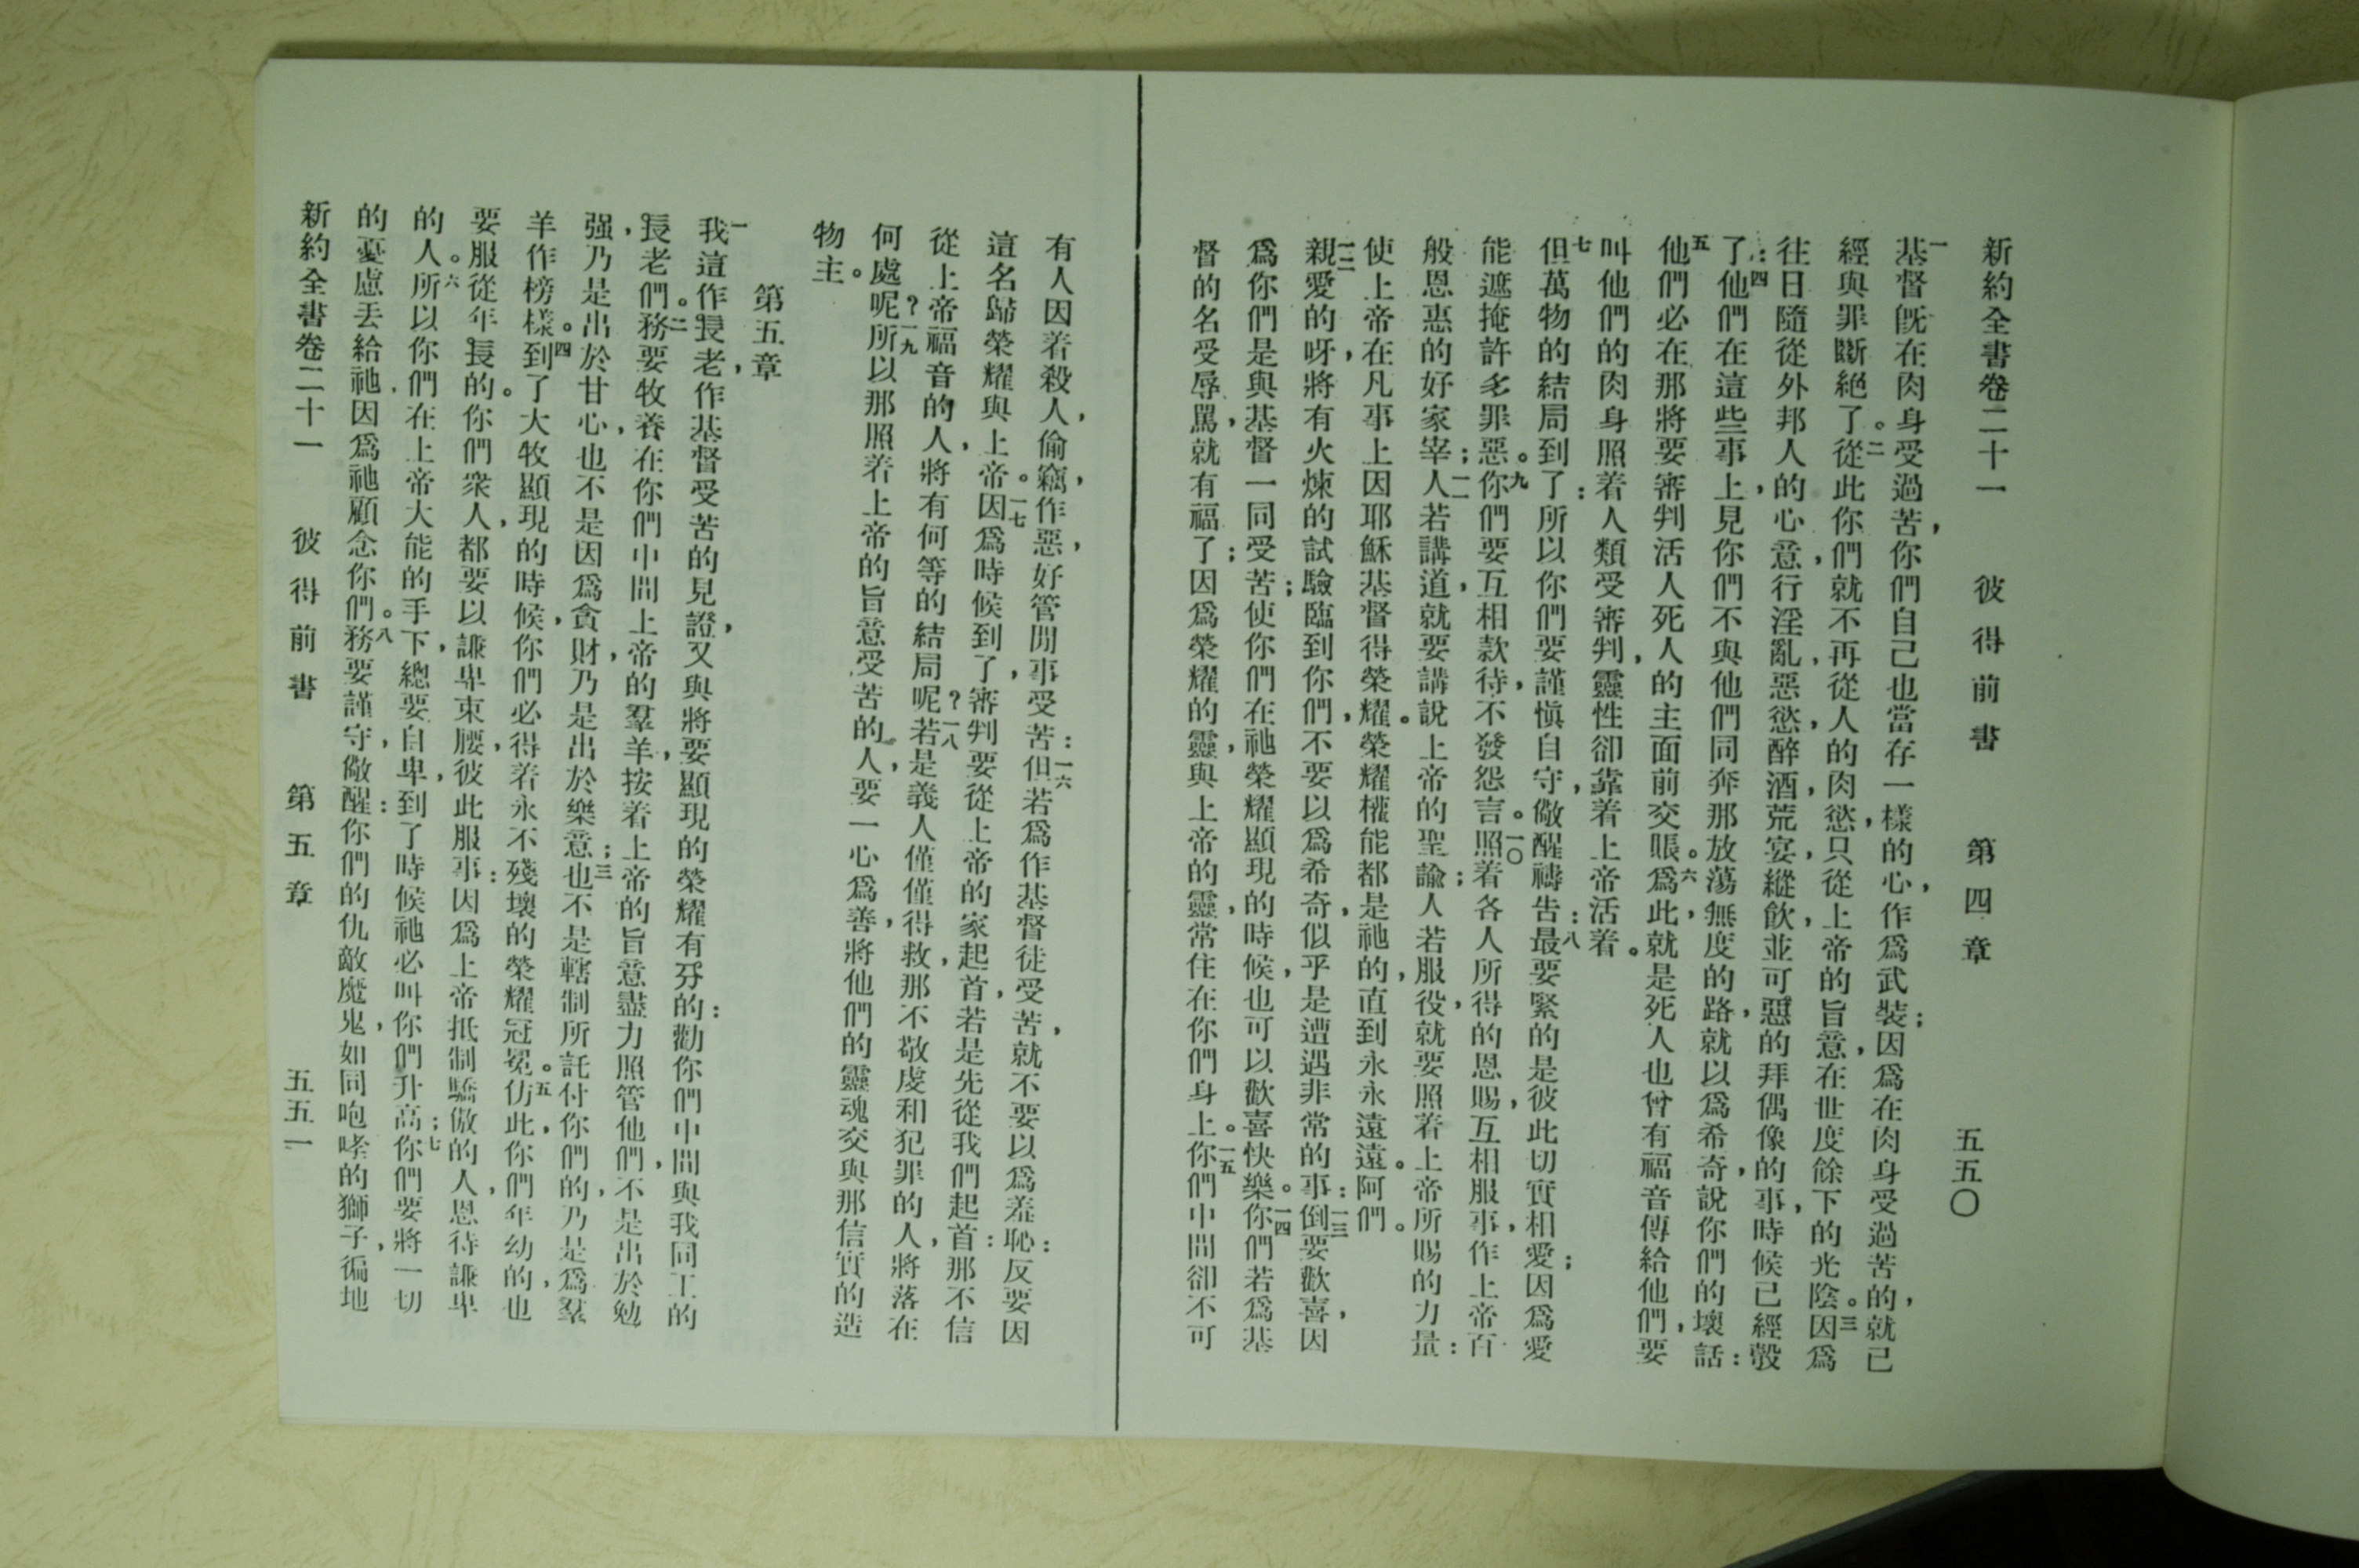 新約全書卷二十一　彼得前書　第四章　五五〇
一基督旣在肉身受過苦，你們自己也當存一樣的心，作爲武裝；因爲在肉身受過苦的，就已
經與罪斷絕了。二從此你們就不再從人的肉慾，只從上帝的旨意，在世度餘下的光陰。三因爲
往日隨從外邦人的心意，行淫亂，惡慾，醉酒，荒宴，縱飲，並可惡的拜偶像的事，時候已經彀
了：四他們在這些事上，見你們不與他們同奔那放蕩無度的路，就以爲希奇，說你們的壞話：
五他們必在那將要審判活人死人的主面前交賬。六爲此，就是死人也曾有福音傳給他們，要
叫他們的肉身照着人類受審判，靈性卻靠着上帝活着。
七但萬物的結局到了：所以你們要謹愼自守，儆醒禱告：八最要緊的是彼此切實相愛；因爲愛
能遮掩許多罪惡。九你們要互相款待，不發怨言。一〇照着各人所得的恩賜，互相服事，作上帝百
般恩惠的好家宰；一一人若講道，就要講說上帝的聖諭；人若服役，就要照着上帝所賜的力量：
使上帝在凡事上因耶穌基督得榮耀。榮耀權能都是祂的，直到永永遠遠。阿們。
一二親愛的呀，將有火煉的試驗臨到你們，不要以爲希奇，似乎是遭遇非常的事：一三倒要歡喜，因
爲你們是與基督一同受苦；使你們在祂榮耀顯現的時候，也可以歡喜快樂。一四你們若爲基
督的名受辱罵，就有福了；因爲榮耀的靈，與上帝的靈，常住在你們身上。一五你們中間卻不可
有人因着殺人，偷竊，作惡，好管閒事受苦：一六但若爲作基督徒受苦，就不要以爲羞恥：反要因
這名歸榮耀與上帝。一七因爲時候到了，審判要從上帝的家起，首若是先從我們起，首：那不信
從上帝福音的人，將有何等的結局呢？一八若是義人僅僅得救，那不敬虔和犯罪的人，將落在
何處呢？一九所以那照着上帝的旨意受苦的人，要一心爲善，將他們的靈魂交與那信實的造
物主。
第五章
一我這作長老，作基督受苦的見證，又與將要顯現的榮耀有分的：勸你們中間與我同工的
長老們。二務要牧養在你們中間上帝的羣羊，按着上帝的旨意盡力照管他們，不是出於勉
强，乃是出於甘心，也不是因爲貪財，乃是出於樂意；三也不是轄制所託付你們的，乃是爲羣
羊作榜樣。四到了大牧顯現的時候，你們必得着永不殘壞的榮耀冠冕。五仿此，你們年幼的，也
要服從年長的。你們衆人，都要以謙卑束腰，彼此服事：因爲上帝抵制驕傲的人，恩待謙卑
的人。六所以你們在上帝大能的手下，總要自卑，到了時候祂必叫你們升高；七你們要將一切
的憂慮丟給祂，因爲祂顧念你們。八務要謹守，儆醒：你們的仇敵魔鬼，如同咆哮的獅子，徧地
新約全書卷二十一　彼得前書　第五章　五五一